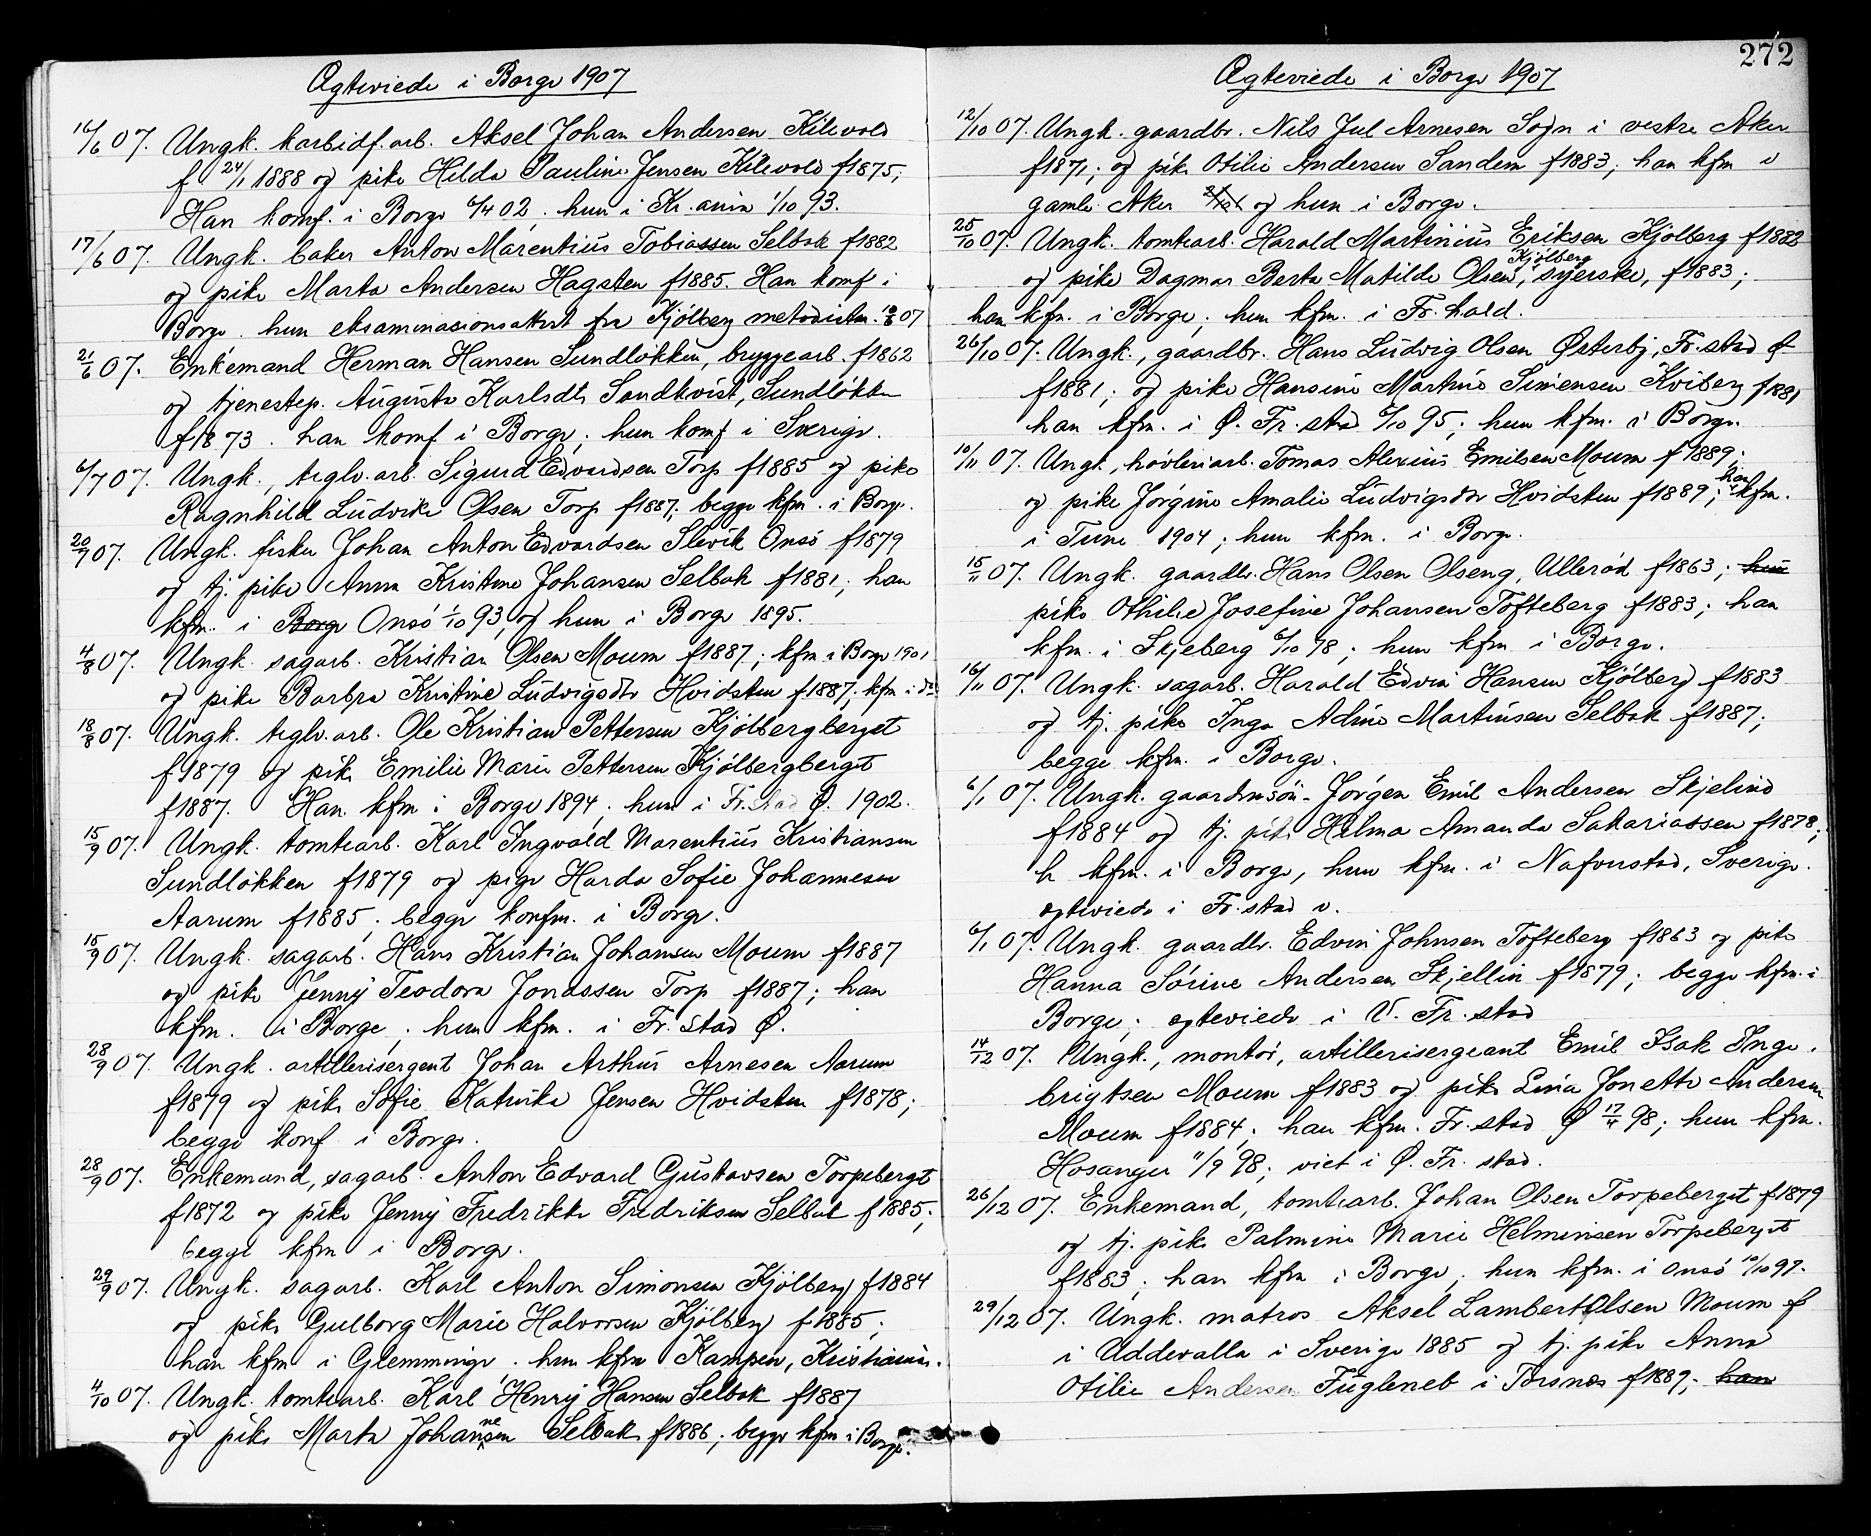 Ægteviede i Borge 1907
16/6 07. Ungk. karbidf.arb. Aksel Johan Andersen Kilevold
f 24/1 1888 og pike Hilda Pauline Jensen Kilevold f1875;
Han komf. i Borge 02. hun i Kr.ania 1/10 93.
17/6 07. Ungk. baker Anton Marentius Tobiassen Selbak f1882
og pike Marta Andersen Hagsten f1885. Han komf i
Borge. hun eksaminasionsattest fra Kjölberg metodistm. 07
21/6 07. Enkemand Herman Hansen Sundløkken, bryggearb. f1862
og tjenestep. Augusta Karlsdtr Sandkvist, Sundløkken
f1873. han komf i Borge; hun komf i Sverige.
6/7 07. Ungk., teglv.arb. Sigurd Edvardsen Torp f1885 og pike
Ragnhild Ludvike Olsen Torp f1887; begge kfm. i Borge.
20/7 07. Ungk. fisker Johan Anton Edvardsen Slevik Onsö f1879
og tj. pike Anna Kristine Johansen Selbak f1881; han
kfm. i Borge Onsö 1/10 93, og hun i Borge 1895.
4/8 07. Ungk. sagarb. Kristian Olsen Moum f1887; kfm i Borge 1901
og pike Barbra Kristine Ludvigsdtr Hvidsten f1887, kfm i do
18/8 07. Ungk. teglv.arb. Ole Kristian Pettersen Kjölbergberget
f1879 og pike Emilie Marie Pettersen Kjölbergberget
f1887. Han kfm i Borge 1894; hun i Fr.stad Ø. 1902.
15/9 07. Ungk. tomtearb. Karl Ingvald Marentius Kristiansen
Sundløkken f1879 og pige Harda Sofie Johannesen
Aarum f1885; begge konfm. i Borge.
15/9 07. Ungk. sagarb. Hans Kristian Johansen Moum f1887
og pike Jenny Teodora Jonassen Torp f1887; han
kfm. i Borge; hun kfm. i Fr.stad Ø.
28/9 07. Ungk. artillerisergent Johan Arthur Arnesen Aarum
f1879 og pike Sofie Katrika Jensen Hvidsten f1878;
begge konf. i Borge.
28/9 07. Enkemand, sagarb. Anton Edvard Gustavsen Torpeberget
f1872 og pike Jenny Fredrikke Fredriksen Selbak f1885;
begge kfm i Borge.
29/9 07. Ungk. sagarb. Karl Anton Simonsen Kjölberg f1884
og pike Gulborg Marie Halvorsen Kjölberg f1885;
han kfm i Glemminge. hun kfm Kampen, Kristiania.
4/10 07. Ungk. tomtearb. Karl Henry Hansen Selbak f1887
og pike Marta Johannesen Selbak f1886; begge kfm i Borge.
272
Ægteviede i Borge 1907
12/10 07. Ungk. gaardbr. Nils Jul Arnesen Sogn i vestre Aker
f1871; og pike Otilie Andersen Sandem f1883; han kfm i
gamle Aker og hun i Borge.
25/10 07. Ungk. tomtearb. Harald Martinius Eriksen Kjölberg f1882
og pike Dagmar Berta Matilde Olsen, Kjölberg syerske, f1883;
han kfm. i Borge; hun kfm. i Fr.hald.
26/10 07. Ungk., gaardbr. Hans Ludvig Olsen Østerby, Fr.stad Ø
f1881; og pike Hansine Martine Simensen Kviberg f1881
han kfm. i Ø. Fr.stad 6/10 95; hun kfm. i Borge.
10/11 07. Ungk., høvleriarb. Tomas Alexius Emilsen Moum f1889;
og pike Jörgine Amalie Ludvigsdtr Hvidsten f1889; han kfm.
i Tune 1904; hun kfm. i Borge.
15/11 07. Ungk. gaardbr. Hans Olsen Olseng, Ullerød f1863; hun
pike Othilie Josefine Johansen Tofteberg f1883; han
kfm. i Skjeberg 6/10 78; hun kfm i Borge.
16/11 07. Ungk. sagarb. Harald Edvin Hansen Kjölberg f1883
og tj. pike Inga Adine Martinsen Selbak f1887;
begge kfm. i Borge.
6/1 07. Ungk. gaardmsön. Jörgen Emil Andersen Skjelind
f1884 og tj. pike Hilma Amanda Sakariassen f1878;
h kfm. i Borge, hun kfm. i Nafverstad, Sverige.
egteviede i Fr.stad v.
6/1 07. Ungk. gaardbr. Edvin Johnsen Tofteberg f1863 og pike
Hanna Sörine Andersen Skjellin f1879; begge kfm. i
Borge; egteviede i V. Fr.stad
14/12 07. Ungk., montör, artillerisergeant Emil Isak Inge-
brigtsen Moum f1883 og pike Lina Jonette Andersen
Moum f1884; han kfm. Fr.stad Ø 17/4 98; hun kfm.
Hosanger 11/9 98; viet i Ø. Fr.stad.
26/12 07. Enkemand, tomtearb. Johan Olsen Torpeberget f1879
og tj. pike Palmine Marie Helmersen Torpeberget
f1883; han kfm i Borge, hun kfm. i Onsö 10/10 97.
29/12 07. Ungk. matros Aksel Lambert Olsen Moum f
i Uddevalla i Sverige 1885 og tj. pike Anna
Otilie Andersen Fugleneb i Torsnes f1889; han